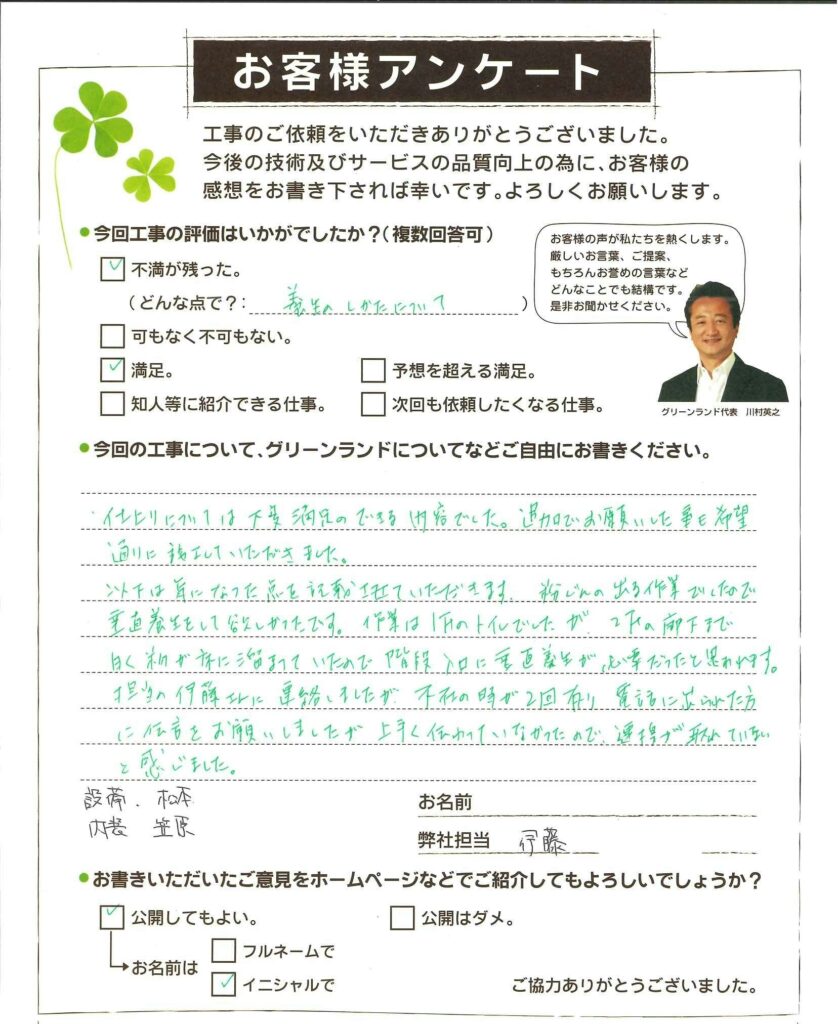 お客様アンケート
工事のご依頼をいただきありがとうございました。
今後の技術及びサービスの品質向上の為に、お客様の
感想をお書き下されば幸いです。よろしくお願いします。
●今回工事の評価はいかがでしたか？（複数回答可）
お客様の声が私たちを熱くします。
厳しいお言葉、ご提案、
もちろんお誉めの言葉など
どんなことでも結構です。
是非お聞かせください。
グリーンランド代表 川村英之
✓ 不満が残った。
（どんな点で？： 養生のしかたについて ）
可もなく不可もない。
✓ 満足。
予想を超える満足。
知人等に紹介できる仕事。
次回も依頼したくなる仕事。
●今回の工事について、グリーンランドについてなどご自由にお書きください。
・仕上りについては大変満足のできる内容でした。追加でお願いした事も希望
通りに施工していただきました。
以下は気になった点を記載させていただきます。粉じんの出る作業でしたので
垂直養生をして欲しかったです。作業は1Fのトイレでしたが、2Fの廊下まで
白く粉が床に溜まっていたので階段入口に垂直養生が必要だったと思われます。
担当の伊藤さんに連絡しましたが、不在の時が2回有り 電話に出られた方
に伝言をお願いしましたが 上手く伝わっていなかったので、連携が取れていない
と感じました。
設備. 松本
内装 笠原
お名前
弊社担当 伊藤
●お書きいただいたご意見をホームページなどでご紹介してもよろしいでしょうか？
✓ 公開してもよい。
公開はダメ。
お名前は
フルネームで
✓ イニシャルで
ご協力ありがとうございました。